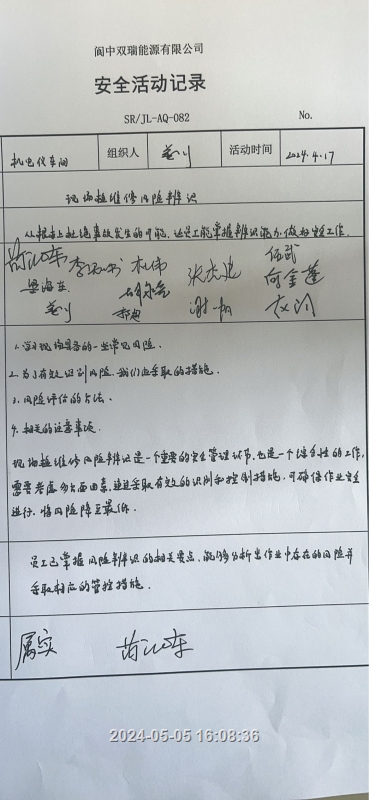 阆中双瑞能源有限公司
安全活动记录
SR/JL-AQ-082 No.
机电仪车间 组织人 活动时间 2024.4.17
现场检维修风险辨识
从根本上杜绝事故发生的可能，让员工能掌握辨识能力，做好安全工作。
伍武
梁海生 何金莲
1.学习现场具备的一些常见风险。
2.为了有效识别风险，我们应采取的措施。
3.风险评估的方法。
4.相关的注意事项。
现场检维修风险辨识是一个重要的安全管理环节，也是一个综合性的工作，
需要考虑多方面因素，通过采取有效的识别和控制措施，可确保作业安全
进行，将风险降至最低。
员工已掌握风险辨识的相关要点，能够分析出作业中存在的风险并
采取相应的管控措施。
属实
2024-05-05 16:08:36